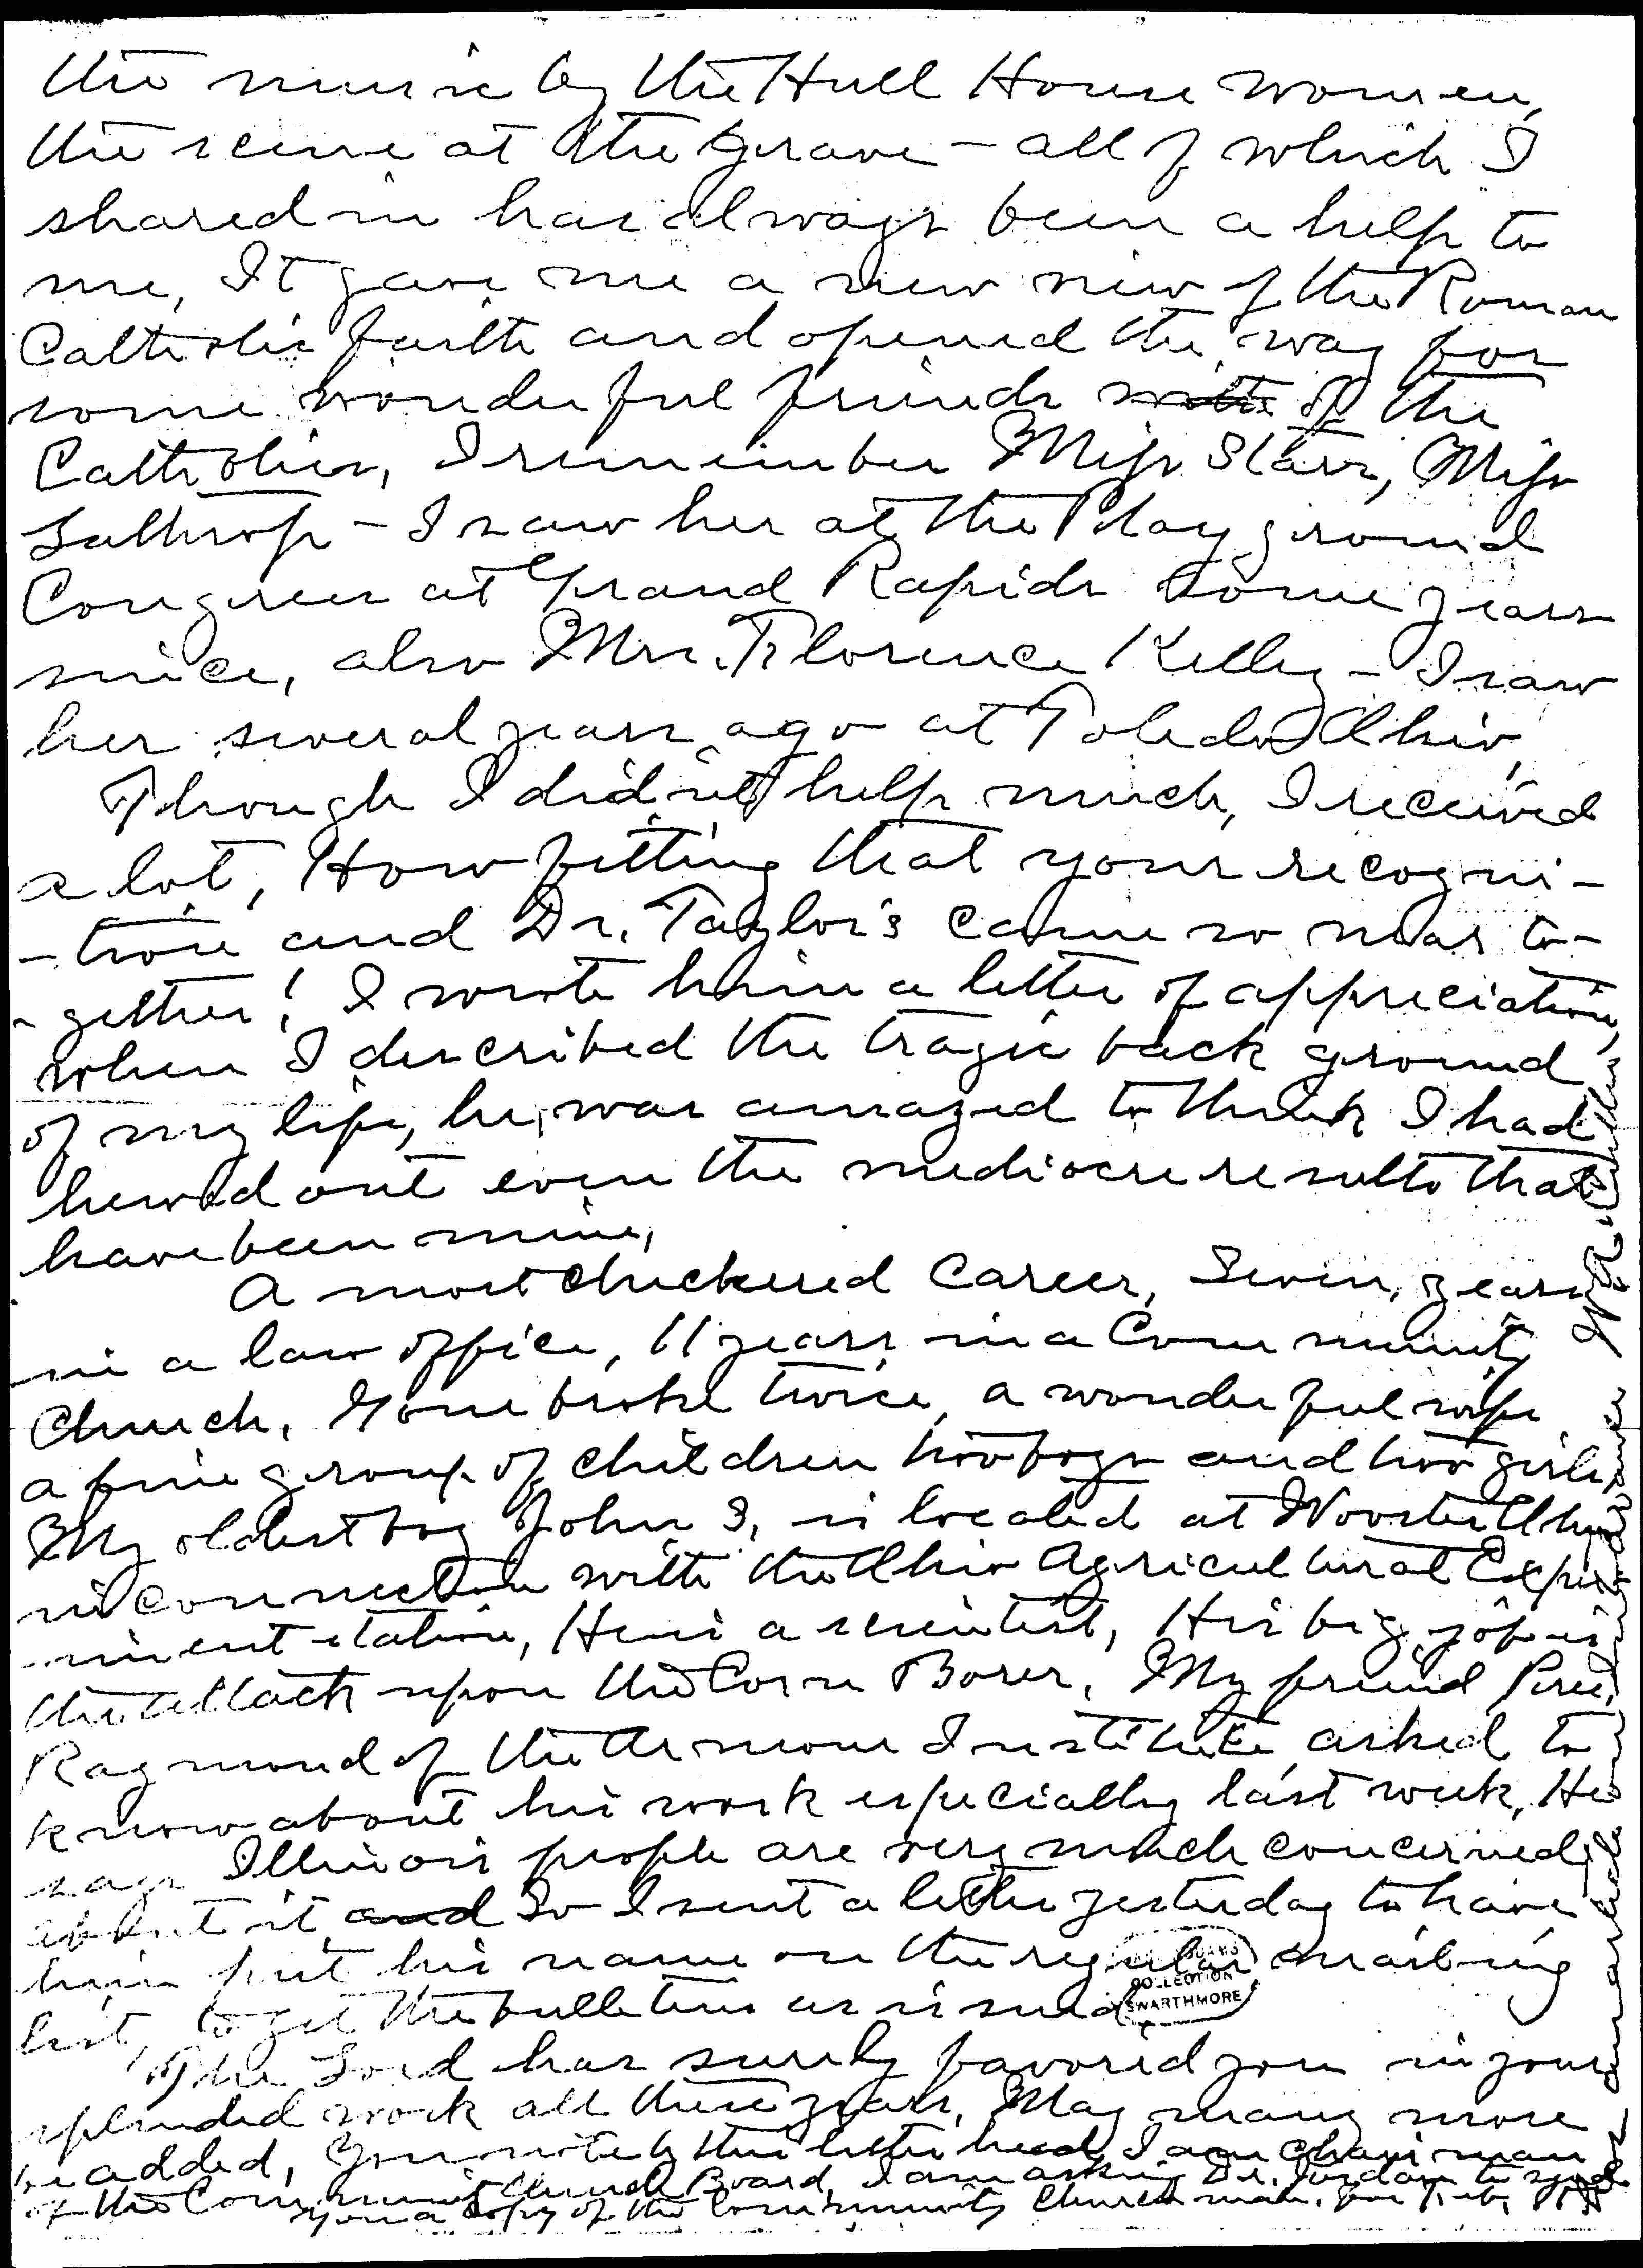 the music by the Hull House women,
the scene at the grave – all of which I
shared in has always been a help to
me, It gave me a new view of the Roman
Catholic faith and opened the way for
some wonderful friends with of the
Catholics, I remember Miss Starr, Miss
Lathrop – I saw her at the Play ground
Congress at Grand Rapids some years
since, also Mrs. Florence Kelley – I saw
her several years ago at Toledo Ohio,
Though I didn't help much, I received
a lot, How fitting that your recogni-
-tion and Dr. Taylor's came so near to-
-gether! I wrote him a letter of appreciation,
when I described the tragic back ground
of my life, he was amazed to think I had
hewed out even the mediocre results that
have been mine,
A most checkered career, Seven, years
in a law office, 11 years in a Community
Church, Gone broke twice, a wonderful wife
a fine group of children two boys and two girls,
My oldest boy John S, is located at Wooster Ohio
in connection with the Ohio Agricultural Exper
iment station, He is a scientist, His big job is
the attack upon the Corn Borer, My friend Pres.
Raymond of the Armour Institute asked to
know about his work especially last week, He
says Illinois people are very much concerned
about it, and So I sent a letter yesterday to have
him put his name on the regular mailing
list, to get the bulletins as issued,
The Lord has surely favored you in your
splendid work all these years, May many more
be added, You note by this letter head, I am chairman
of the Community Church Board, I am asking Dr. Jordan to send
you a copy of the Community Churchman.
COLLECTION
SWARTHMORE